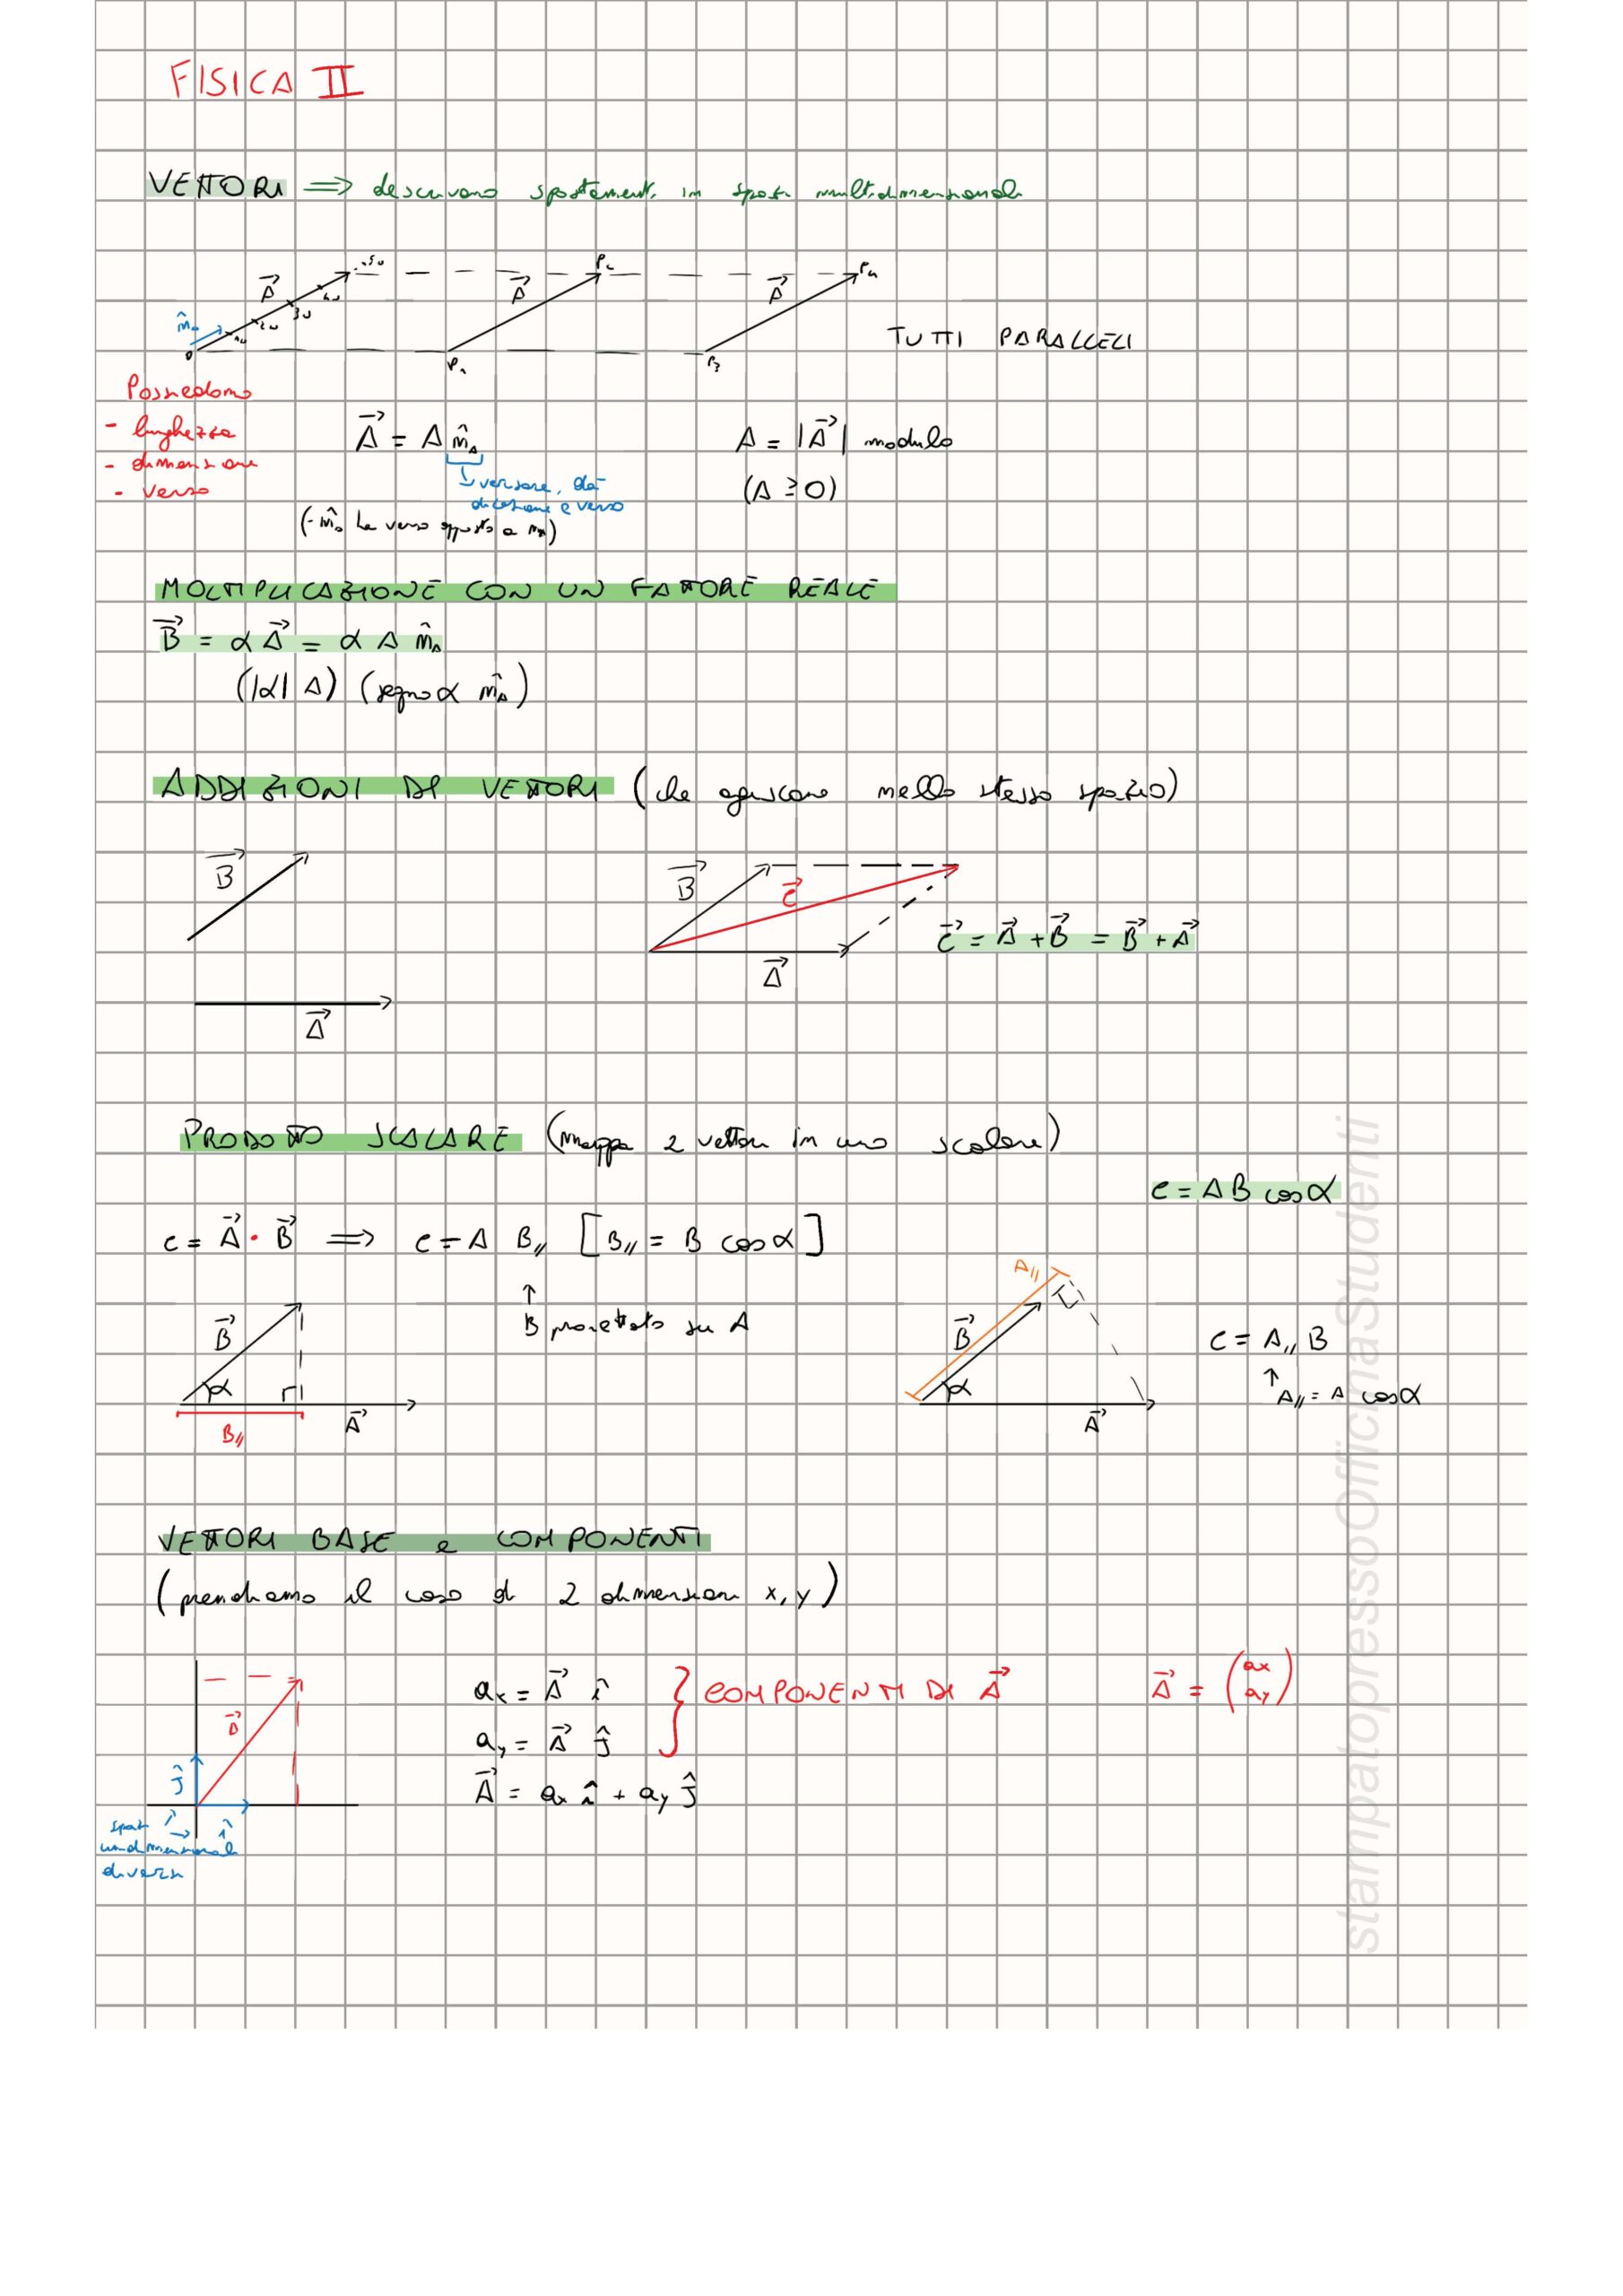 FISICA II
VETTORI => descrivono spostamenti in spazi multidimensionali
5u
4u
3u
2u
1u
n̂A
A⃗
A⃗
A⃗
P2
P4
O
P1
P3
TUTTI PARALLELI
Possiedono
- lunghezza
- dimensione
- verso
A⃗ = A n̂A
↳ versore, dà
direzione e verso
(-n̂A ha verso opposto a n̂A)
A = |A⃗| modulo
(A ≥ 0)
MOLTIPLICAZIONE CON UN FATTORE REALE
B⃗ = α A⃗ = α A n̂A
(|α| A) (segno α n̂A)
ADDIZIONI DI VETTORI (che agiscono nello stesso spazio)
B⃗
A⃗
B⃗
C⃗
A⃗
C⃗ = A⃗ + B⃗ = B⃗ + A⃗
PRODOTTO SCALARE (mappa 2 vettori in uno scalare)
c = A B cos α
c = A⃗ · B⃗ => c = A B// [B// = B cos α]
↑
B proiettato su A
B⃗
α
A⃗
B//
A//
B⃗
α
A⃗
c = A// B
↑ A// = A cos α
VETTORI BASE e COMPONENTI
(prendiamo il caso di 2 dimensioni x, y)
A⃗
ĵ
î
spazi
unidimensionali
diversi
ax = A⃗ î
ay = A⃗ ĵ
} COMPONENTI DI A⃗
A⃗ = (ax ay)
A⃗ = ax î + ay ĵ
stampatopressoOfficinaStudenti